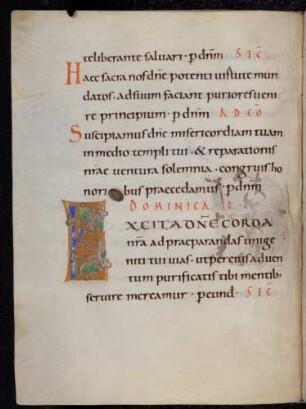 teliberante saluari · p dnm SIC̄
Haec sacra nos dne potenti uirtute mun
datos · ad suum faciant puriores ueni
re principium · p dnm AD CŌ
Suscipiamus dne misericordiam tuam
in medio templi tui · & reparationis
nrae uentura sollemnia · congruis ho
noribus praecedamus · p dnm
DOMINICA II ·
EXCITA DNE CORDA
nra ad praeparandas unige
niti tui uias · ut per eius aduen
tum purificatis tibi mentib;
seruire mereamur · p eund · SIC̄